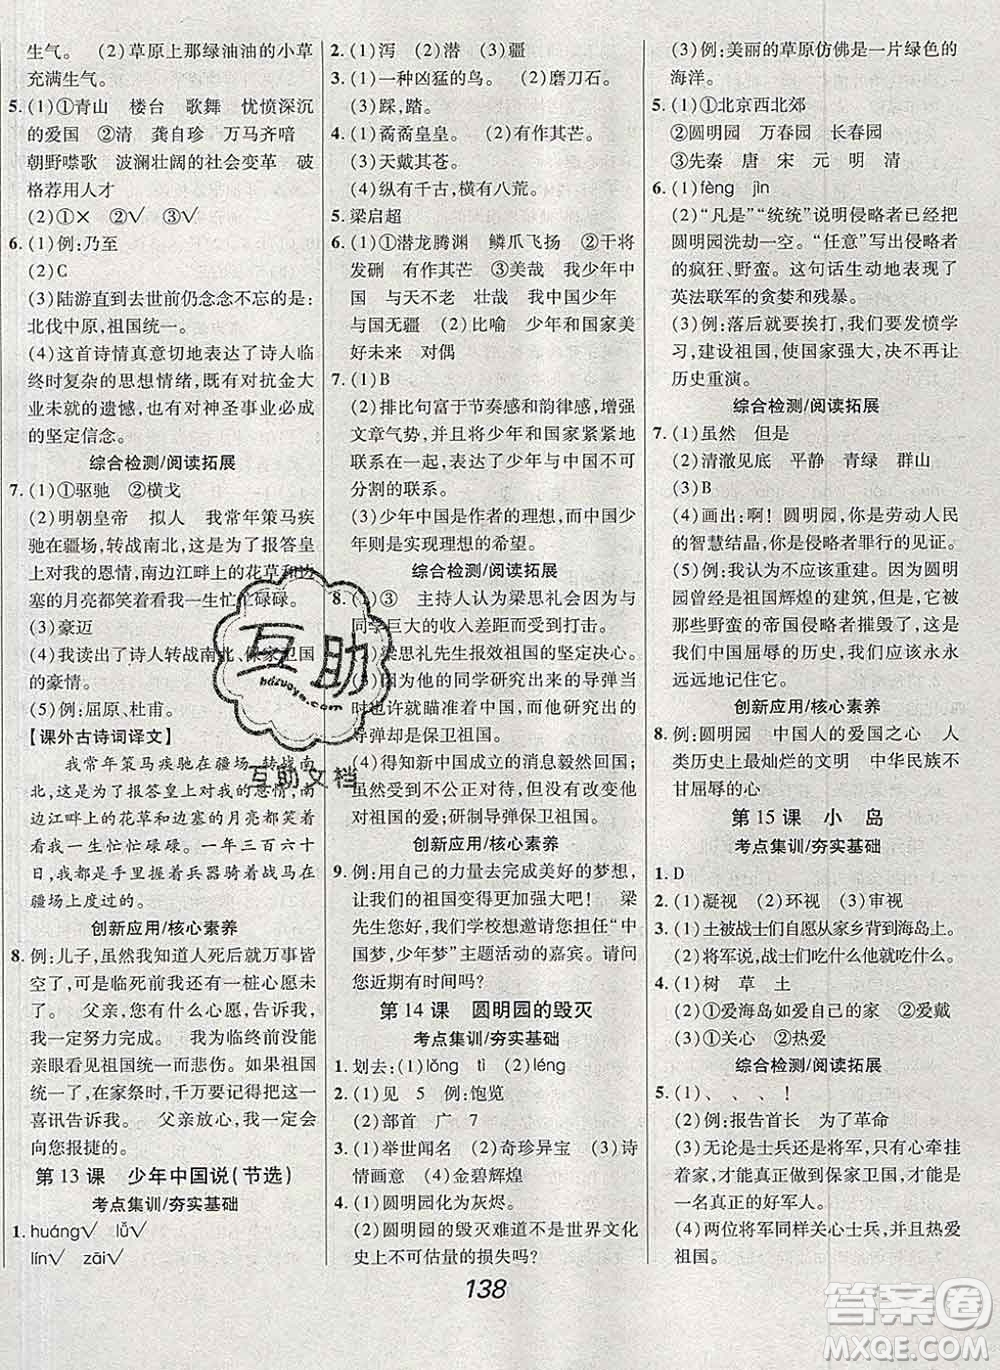 生气。　(2)草原上那绿油油的小草
充满生气。
5. (1)①青山　楼台　歌舞　忧愤深沉
的爱国　②清　龚自珍　万马齐喑
朝野噤歌　波澜壮阔的社会变革　破
格荐用人才
(2)①×　②√　③√
6. (1)例:乃至
(2)C
(3)陆游直到去世前仍念念不忘的是:
北伐中原,祖国统一。
(4)这首诗情真意切地表达了诗人临
终时复杂的思想情绪,对抗金大
业未就的遗憾,也有对神圣事业必成
的坚定信念。
综合检测/阅读拓展
7. (1)①驱驰　②横戈
(2)明朝皇帝　拟人　我常年策马疾
驰在疆场,转战南北,这是为了报答皇
上对我的恩情,南边江畔上的花草和边
塞的月亮都笑着看我一生忙忙碌碌。
(3)豪迈
(4)我读出了诗人转战南北、保家卫国
的豪情。
(5)例:屈原、杜甫。
【课外古诗词译文】
我常年策马疾驰在疆场,转战南
北,这是为了报答皇上对我的恩情,南
边江畔上的花草和边塞的月亮都笑着
看我一生忙忙碌碌。一年三百六十
日,我都是手里握着兵器骑着战马在
疆场上度过的。
创新应用/核心素养
8. 例:儿子,虽然我知道人死后就万事皆
空了,可是临死前我还有一桩心愿未
了。　父亲,您有什么心愿,告诉我,我
一定努力完成。　我为临终前没能
亲眼看见祖国统一而悲伤。如果祖国
统一了,在家祭时,千万要记得把这个
喜讯告诉我。　父亲放心,我一定会
向您报捷的。
第 13 课　少年中国说(节选)
考点集训/夯实基础
1. huáng√　lǜ√
lín√　zāi√
2. (1)泻　(2)潜　(3)疆
3. (1)一种凶猛的鸟。　(2)磨刀石。
(3)踩,踏。
4. (1)矞矞皇皇。　(2)有作其芒。
(3)天戴其苍。
(4)纵有千古,横有八荒。
5. 梁启超
6. (1)①潜龙腾渊　鳞爪飞扬　②干将
发硎　有作其芒　③美哉　我少年中
国　与天不老　壮哉　我中国少年
与国无疆　(2)比喻　少年和国家美
好未来　对偶
7. (1)B
(2)排比句富于节奏感和韵律感,增强
文章气势,同时又将少年和国家紧紧地
联系在一起,表达了少年与中国不可
分割的联系。
(3)少年中国是作者的理想,而中国少
年则是实现理想的希望。
综合检测/阅读拓展
8. (1)③　主持人认为梁思礼会因为与
同学巨大的收入差距而受到打击。
(2)梁思礼先生报效祖国的坚定决心。
(3)因为他的同学研究出来的导弹当
时也许是用来威慑中国,而他研究出的
导弹却是为了保卫祖国。
(4)得知新中国成立的消息毅然回国;
受到不公正对待时,仍然无怨无悔地热
爱着国家;研制导弹保卫祖国。
创新应用/核心素养
9. 例:用自己的力量去完成美好的愿望,
让我们的祖国变得更加强大吧!　梁
先生您好,我们学校想邀请您作为“中
国梦,少年梦”主题活动的嘉宾。请问
您近期有时间吗?
第 14 课　圆明园的毁灭
考点集训/夯实基础
1. 划去:(1)lǒng　tì　(2)léng
2. (1)见　5　例:饱览
(2)部首　广　7
3. (1)举世闻名　(2)奇珍异宝　(3)诗
情画意　(4)金碧辉煌
4. (1)圆明园化为灰烬。
(2)圆明园的毁灭难道不是世界文化
史上不可估量的损失吗?
(3)例:美丽的草原仿佛是一片绿色的
海洋。
5. (1)①北京西北郊
②圆明园　万春园　长春园
③先秦　唐　宋　元　明　清
6. (1)fèng　jìn
(2)“凡是”“统统”说明侵略者已经把
圆明园洗劫一空。“任意”写出侵略者
的疯狂、野蛮。这句话生动地表现了
英法联军的贪婪和残暴。
(3)例:落后就要挨打,我们要发愤学
习,建设祖国,使国家强大,才能不让
历史重演。
综合检测/阅读拓展
7. (1)虽然　但是
(2)清澈见底　平静　青绿　群山
(3)B
(4)画出:啊!圆明园,你是劳动人民
的智慧结晶,你是侵略者罪行的见证。
(5)例:我认为不应该重建。因为圆明
园曾经是祖国辉煌的建筑,它的毁灭是
那些野蛮的帝国侵略者造成的,这是
我们中国屈辱的历史,我们应该永永远
远地记住它。
创新应用/核心素养
8. 例:圆明园　中国人的爱国之心　人
类历史上最灿烂的文明　中华民族不
甘屈辱的精神
第 15 课　小　岛
考点集训/夯实基础
1. D
2. (1)凝视　(2)环视　(3)审视
3. (1)土被战士们自愿从家乡背到海岛上。
(2)将军说,战士们吃啥他就吃什么。
4. (1)树　草　土
(2)①爱海岛如爱自己的家　②爱戴
(3)①关心　②热爱
综合检测/阅读拓展
5. (1)、　、　、　!
(2)例:报告首长　为了革命
(3)无论是士兵还是将军,内心牵挂
着的只有自己应该保家卫国,才能成为
一名真正的好军人。
(4)两位将军同样关心士兵,并且热爱
祖国。
138
互助
hdzuoye.com
互助文档
答案圈
MXQE.COM